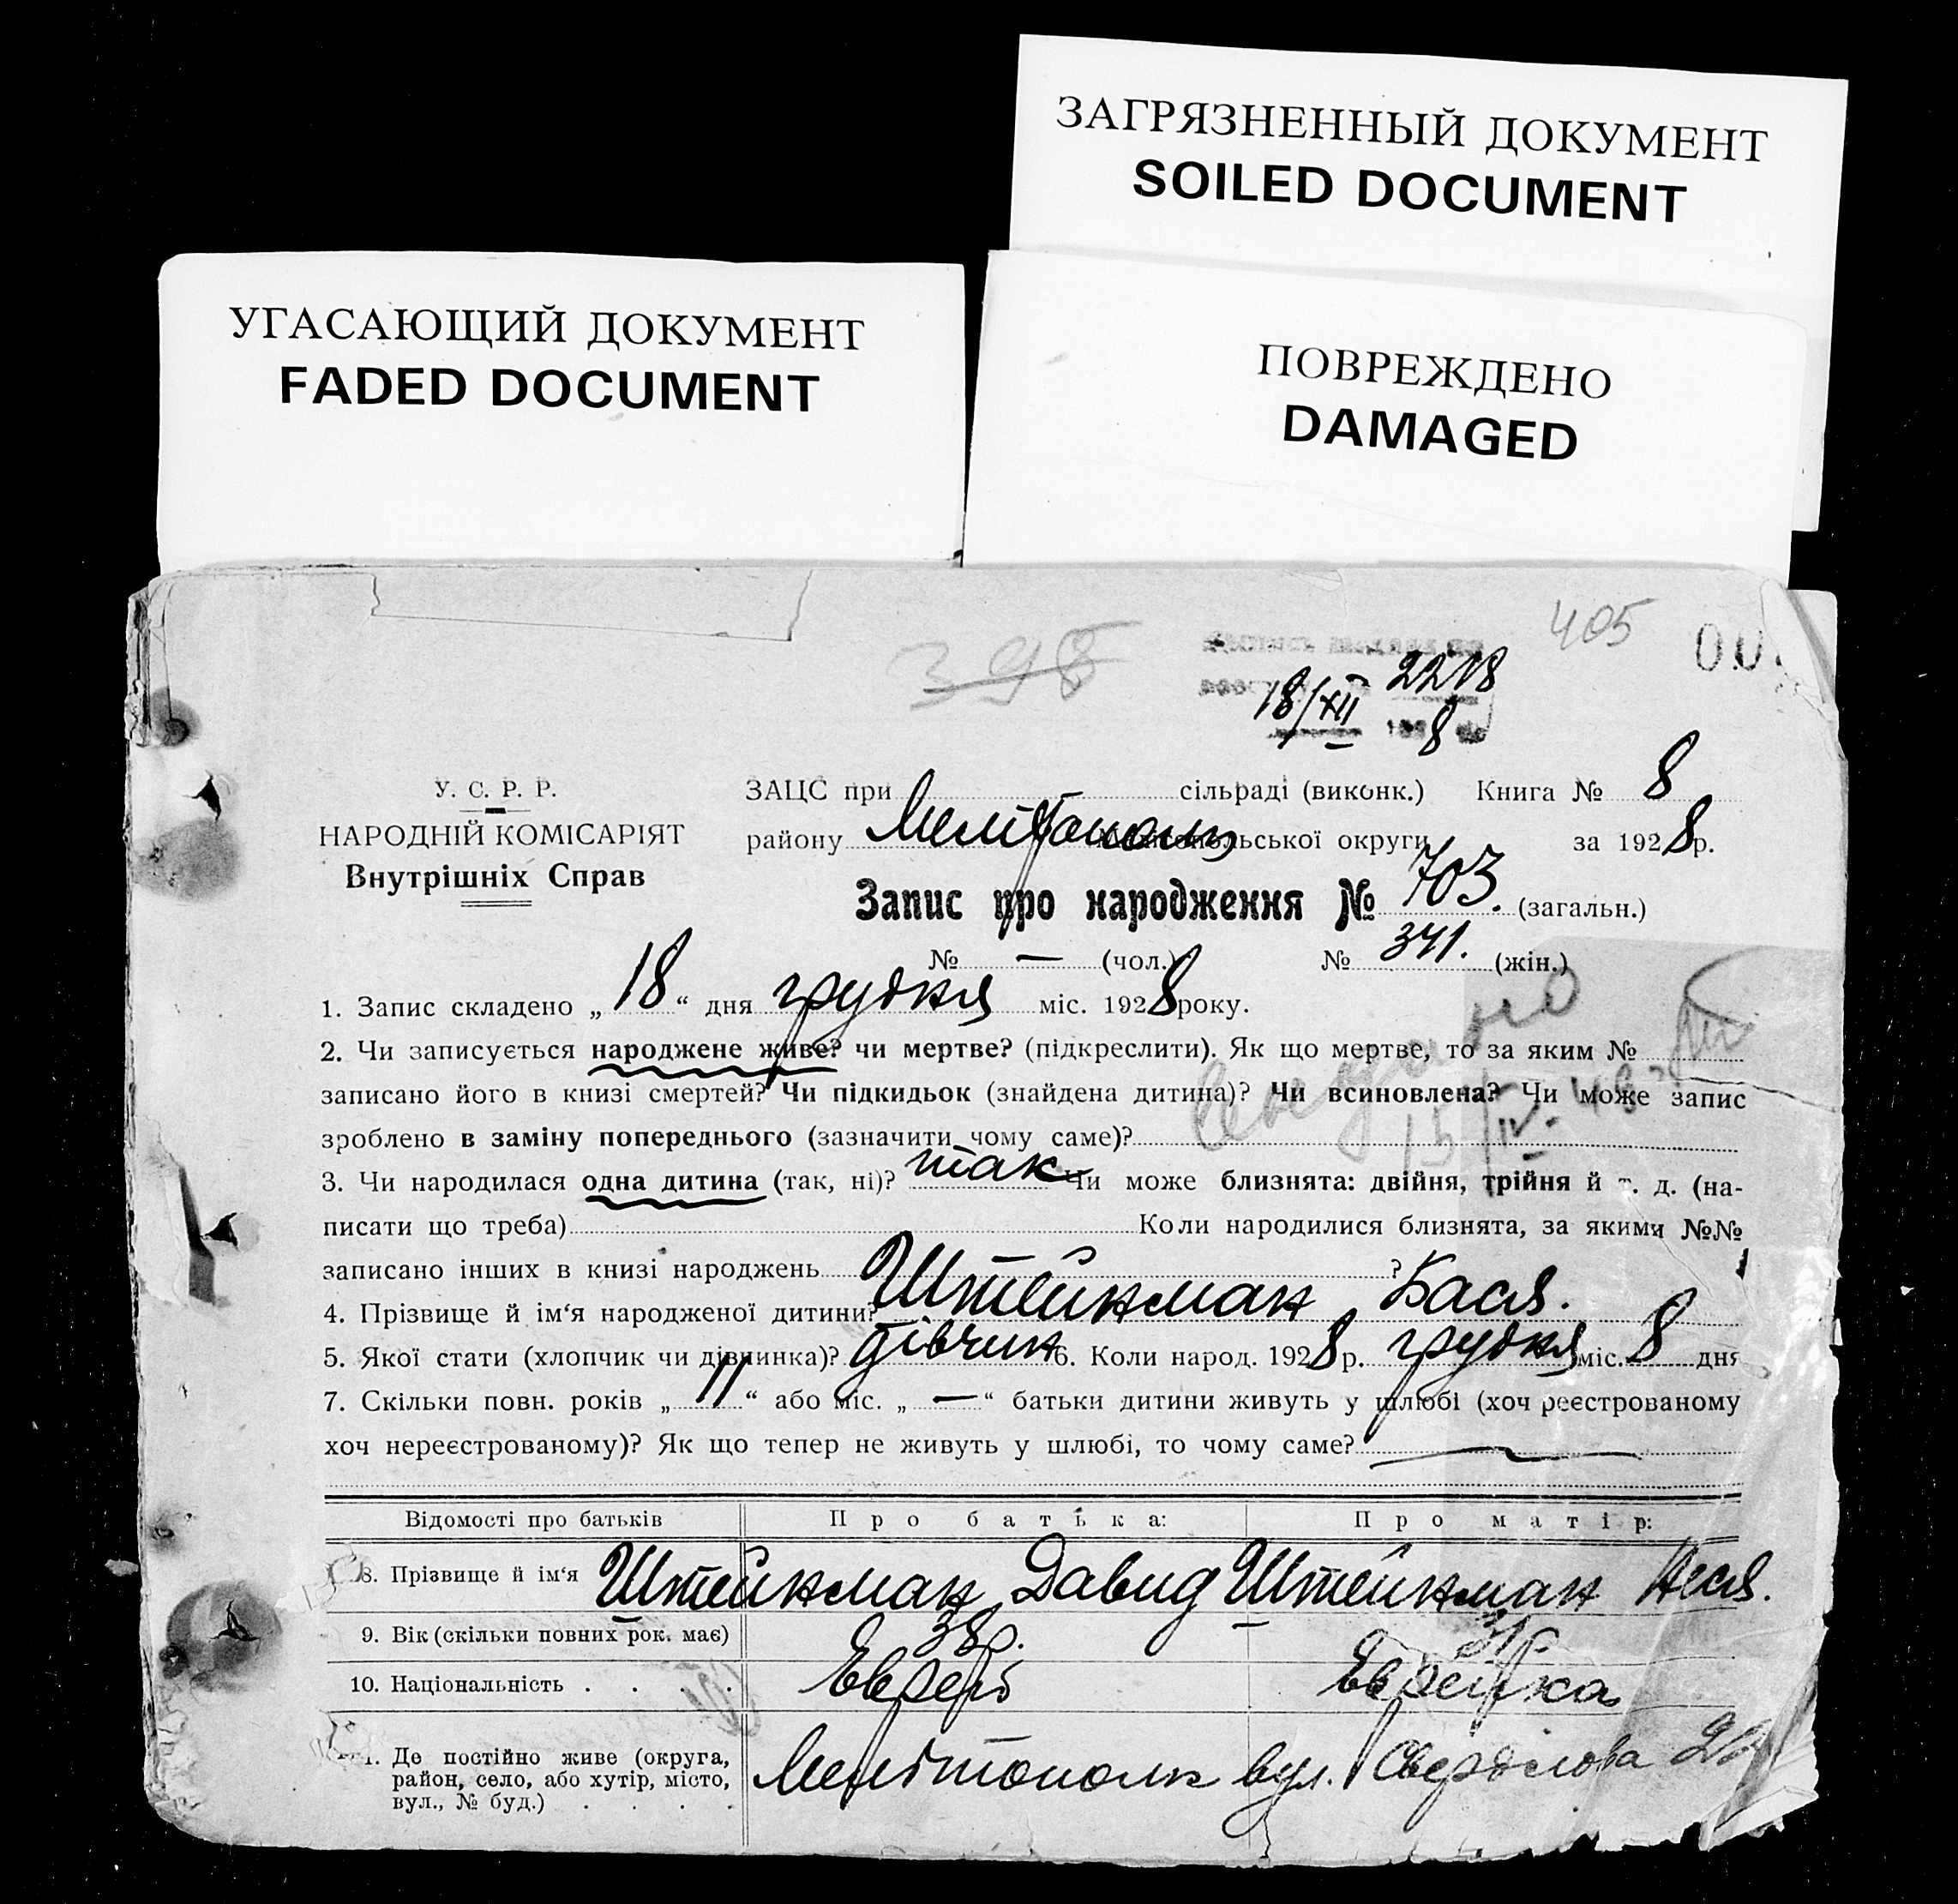 ЗАГРЯЗНЕННЫЙ ДОКУМЕНТ
SOILED DOCUMENT
УГАСАЮЩИЙ ДОКУМЕНТ
FADED DOCUMENT
ПОВРЕЖДЕНО
DAMAGED
398
405
00
18/XII
8
У. С. Р. Р.
НАРОДНІЙ КОМІСАРІЯТ
Внутрішніх Справ
ЗАЦС при сільраді (виконк.) Книга № 8
району Мелітополь Мелітопольської округи за 1928р.
Запис про народження № 703. (загальн.)
№ — (чол.) № 341. (жін.)
1. Запис складено „18“ дня грудня міс. 1928 року.
2. Чи записується народжене живе? чи мертве? (підкреслити). Як що мертве, то за яким №
записано його в книзі смертей? Чи підкидьок (знайдена дитина)? Чи всиновлена? Чи може запис
зроблено в заміну попереднього (зазначити чому саме)?
3. Чи народилася одна дитина (так, ні)? так Чи може близнята: двійня, трійня й т. д. (на-
писати що треба) Коли народилися близнята, за якими №№
записано інших в книзі народжень ?
4. Прізвище й ім‘я народженої дитини? Штейнман Кася.
5. Якої стати (хлопчик чи дівчинка)? дівчин 6. Коли народ. 1928 р. грудня міс. 8 дня
7. Скільки повн. років „11“ або міс. „—“ батьки дитини живуть у шлюбі (хоч реєстрованому
хоч нереєстрованому)? Як що тепер не живуть у шлюбі, то чому саме? —
Відомості про батьків Про батька: Про матір:
8. Прізвище й ім‘я Штейнман Давид Штейнман Неся.
9. Вік (скільки повних рок. має) 38р.
10. Національність . . . . Еврей Еврейка
11. Де постійно живе (округа, район, село, або хутір, місто, вул., № буд.) . . . . Мелітополь вул. Свердлова